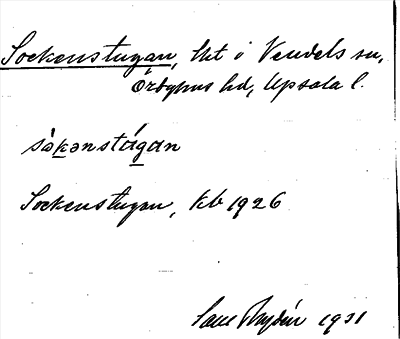 Sockenstugan, lht i Vendels sn,
Örbyhus hd, Upsala l.
såkənstúgan
Sockenstugan, kb 1926
1931